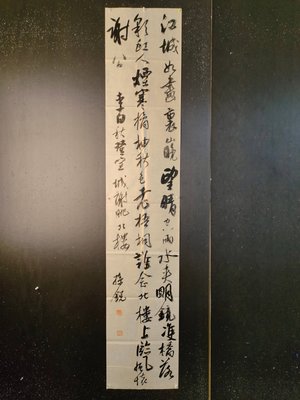 江城如畫裏山曉望晴空兩水夾明鏡雙橋落
彩虹人煙寒橘柚秋色老梧桐誰念北樓上臨風懷
謝公
李白秋登宣城謝朓北樓